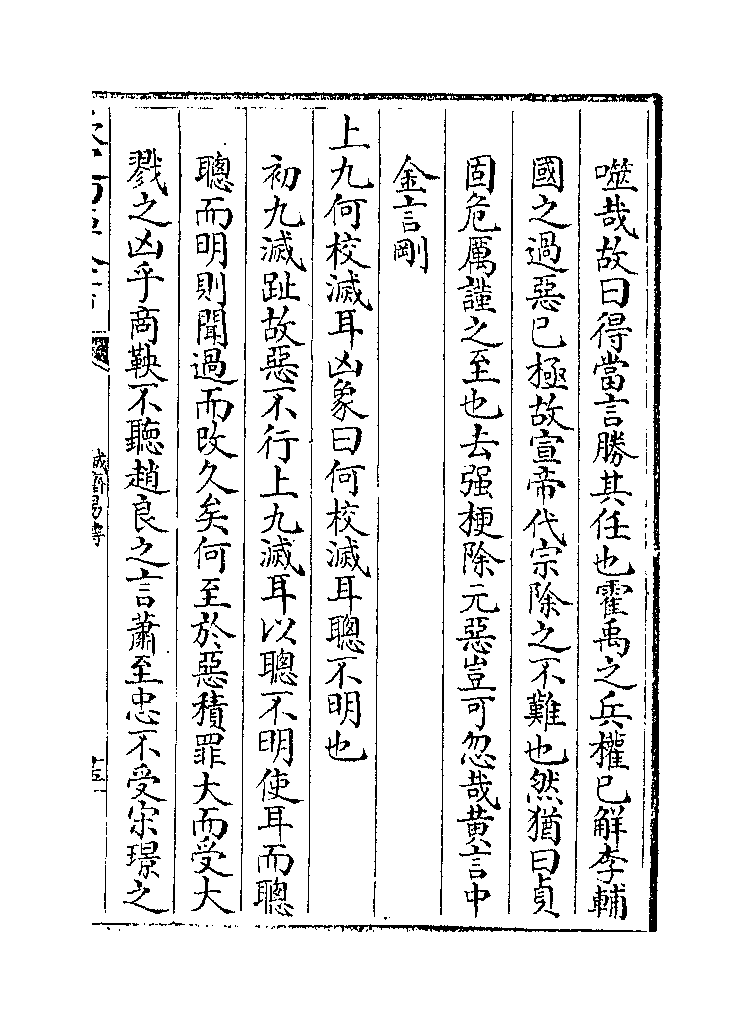 噬哉故曰得當言勝其任也霍禹之兵權已解李輔
國之過惡已極故宣帝代宗除之不難也然猶曰貞
固危厲謹之至也去强梗除元惡豈可忽哉黄言中
金言剛
上九何校滅耳凶象曰何校滅耳聰不明也
初九滅趾故惡不行上九滅耳以聰不明使耳而聰
聰而明則聞過而改久矣何至於惡積罪大而受大
戮之凶乎商鞅不聽趙良之言蕭至忠不受宋璟之
誠齋易傳
十五